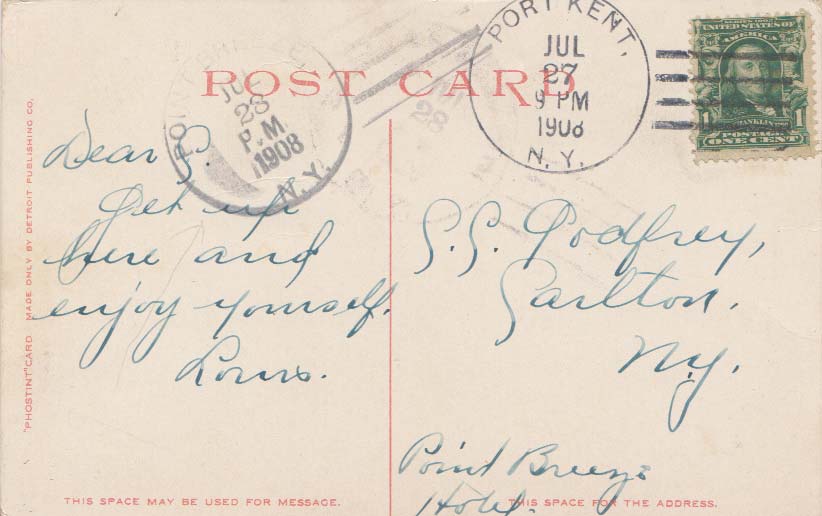 POST CARD
PORT KENT,
JUL
27
9 PM
1908
N. Y.
SERIES 1902
UNITED STATES OF
AMERICA
FRANKLIN
1 1
POSTAGE
ONE CENT
POINT
28
P.M.
1908
N.Y.
28
Dear S.
Get up
here and
enjoy yourself.
Louis.
S.S. Godfrey,
Carlton.
N.y.
Point Breeze
Hotel.
"PHOSTINT" CARD MADE ONLY BY DETROIT PUBLISHING CO.
THIS SPACE MAY BE USED FOR MESSAGE.
THIS SPACE FOR THE ADDRESS.